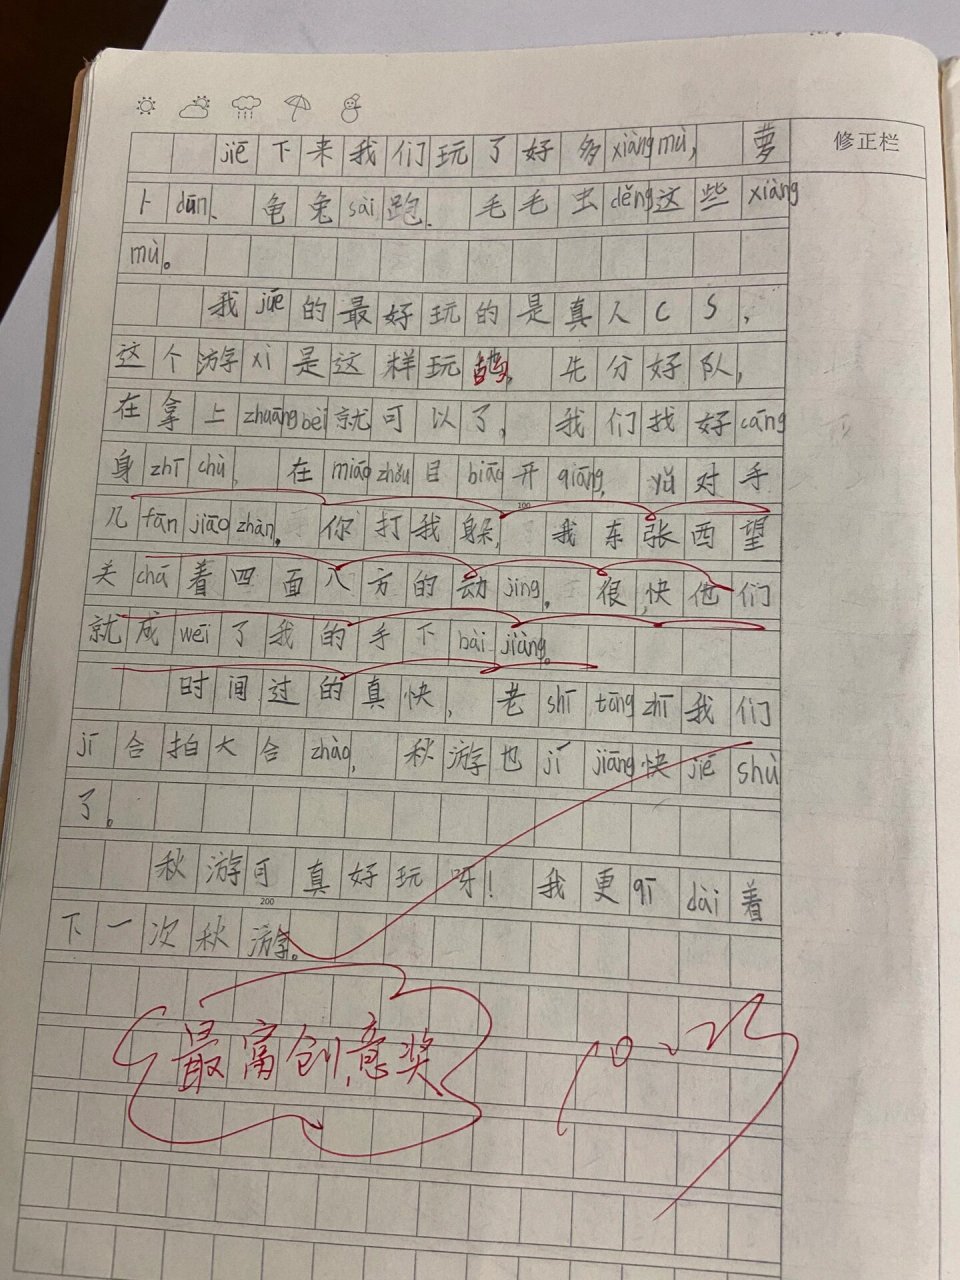 修正栏
jiē下来我们玩了好多xiàngmù，萝
卜dūn、龟兔sài跑、毛毛虫děng这些xiàng
mù。
我jué的最好玩的是真人CS，
这个游xì是这样玩的，先分好队，
在拿上zhuāngbèi就可以了，我们找好cāng
身zhīchù，在miáozhǔn目biāo开qiāng，yǔ对手
100
几fānjiāozhàn。你打我躲，我东张西望
关chá着四面八方的动jìng。很快他们
就成wéi了我的手下bàijiàng。
时间过的真快，老shītōngzhī我们
jí合拍大合zhào，秋游也jíjiāng快jiéshù
了。
秋游可真好玩呀！我更qīdài着
200
下一次秋游。
最富创意奖
10.23